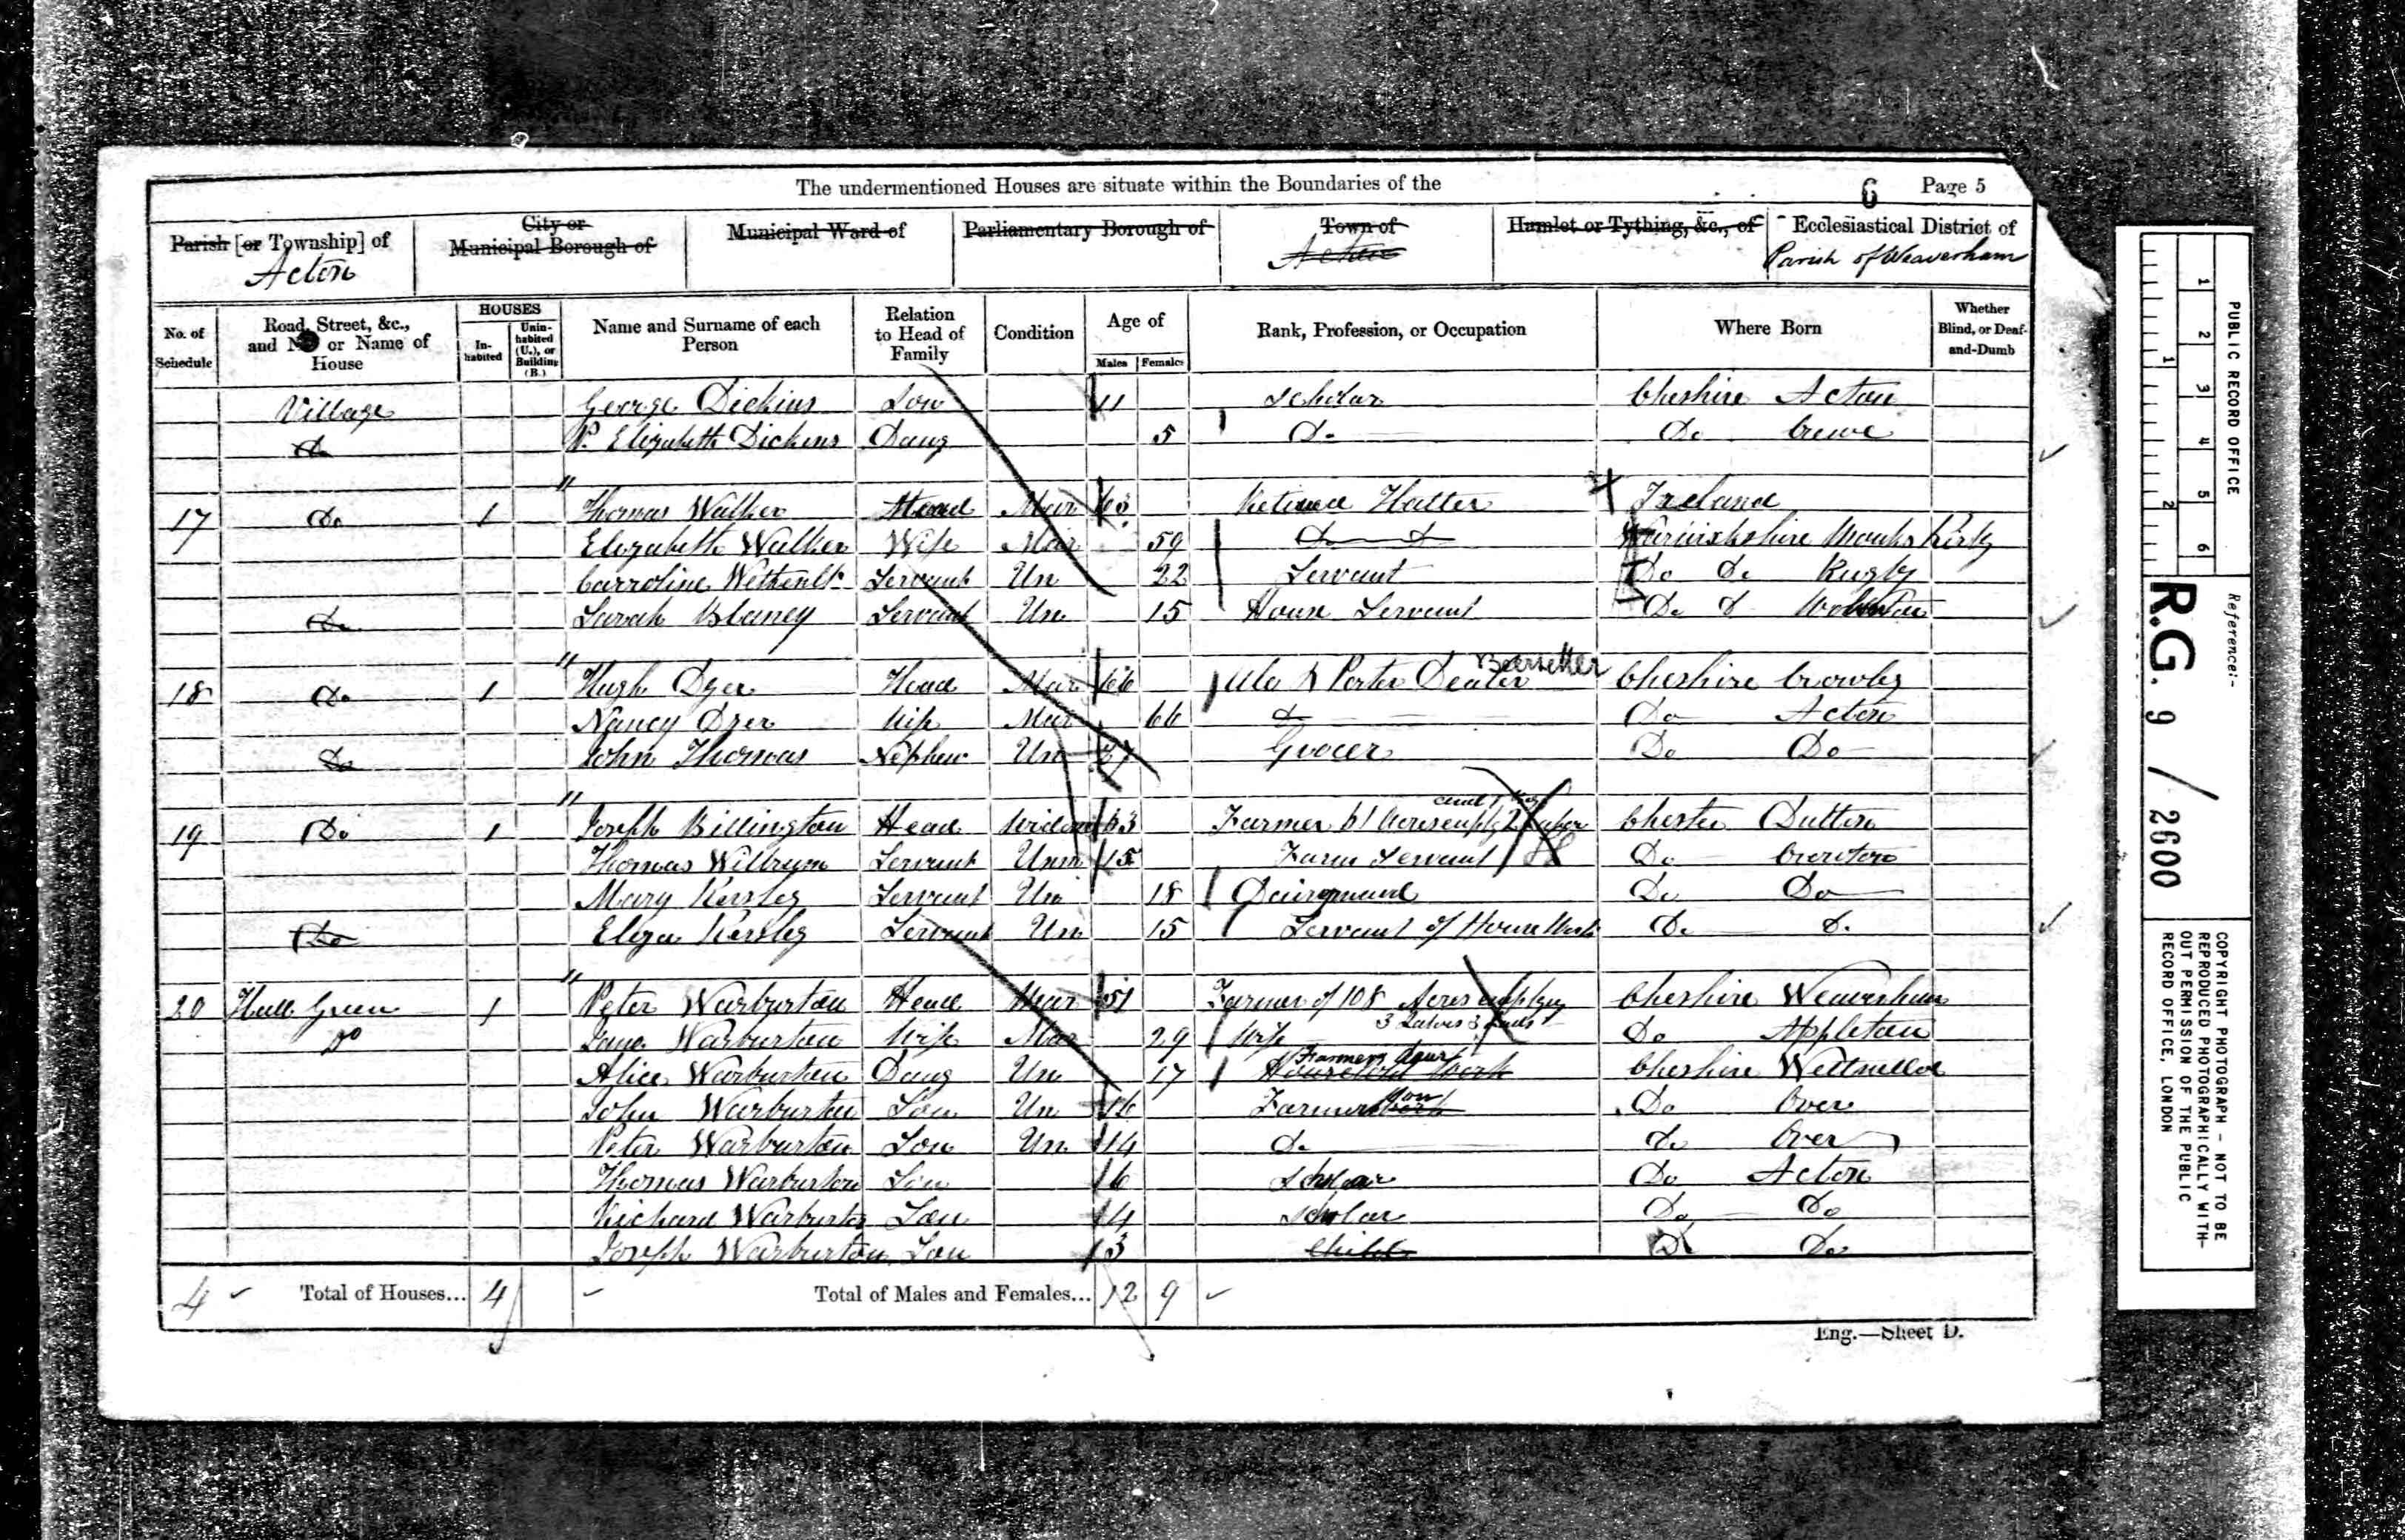 The undermentioned Houses are situate within the Boundaries of the
6 Page 5
Parish [or Township] of City or Municipal Borough of Municipal Ward of Parliamentary Borough of Town of Hamlet or Tything, &c., of Ecclesiastical District of
Acton Acton Parish of Weaverham
No. of Schedule Road, Street, &c., and No. or Name of House HOUSES Inhabited Uninhabited (U.), or Building (B.) Name and Surname of each Person Relation to Head of Family Condition Age of Males Females Rank, Profession, or Occupation Where Born Whether Blind, or Deaf-and-Dumb
Village George Dickins Son 11 Scholar Cheshire Acton
Do P. Elizabeth Dickens Daug 5 Do Do Crewe
17 Do 1 Thomas Walker Head Mar 63 Retired Hatter Ireland
Elizabeth Walker Wife Mar 59 Do Do Warwickshire Monks Kirby
Carroline Servant Un 22 Servant Do Do Rugby
Do Sarah Blaney Servant Un 15 House Servant Do D
18 Do 1 Hugh Dyer Head Mar 66 Ale & Porter Dealer Beerseller Cheshire Crowley
Nancy Dyer Wife Mar 66 Do Do Acton
Do John Thomas Nephew Un 27 Grocer Do Do
19 Do 1 Joseph Billington Head Widower 63 Farmer 61 Acres 2 Chester Dutton
Thomas Servant Unm 15 Farm Servant Do Crowton
Mary Kersley Servant Un 18 Dairymaid Do Do
Do Eliza Kersley Servant Un 15 Servant of House Work Do D.
20 Hall Green 1 Peter Warburton Head Mar 51 Farmer of 108 Acres employing Cheshire Weaverham
3 3
Do Jane Warburton Wife Mar 29 Wife Do Appleton
Alice Warburton Daug Un 17 Household Work Farmers Daur Cheshire
John Warburton Son Un 16 Farmers Son Do Over
Peter Warburton Son Un 14 do do Over
Thomas Warburton Son 6 Scholar Do Acton
Richard Warburton Son 4 Scholar Do Do
Joseph Warburton Son 3 Child Do Do
4 Total of Houses... 4 Total of Males and Females... 12 9
Eng.—Sheet D.
PUBLIC RECORD OFFICE
1 2 3 4 5 6
1 2
Reference:-
R.G. 9 / 2600
COPYRIGHT PHOTOGRAPH - NOT TO BE
REPRODUCED PHOTOGRAPHICALLY WITH-
OUT PERMISSION OF THE PUBLIC
RECORD OFFICE, LONDON